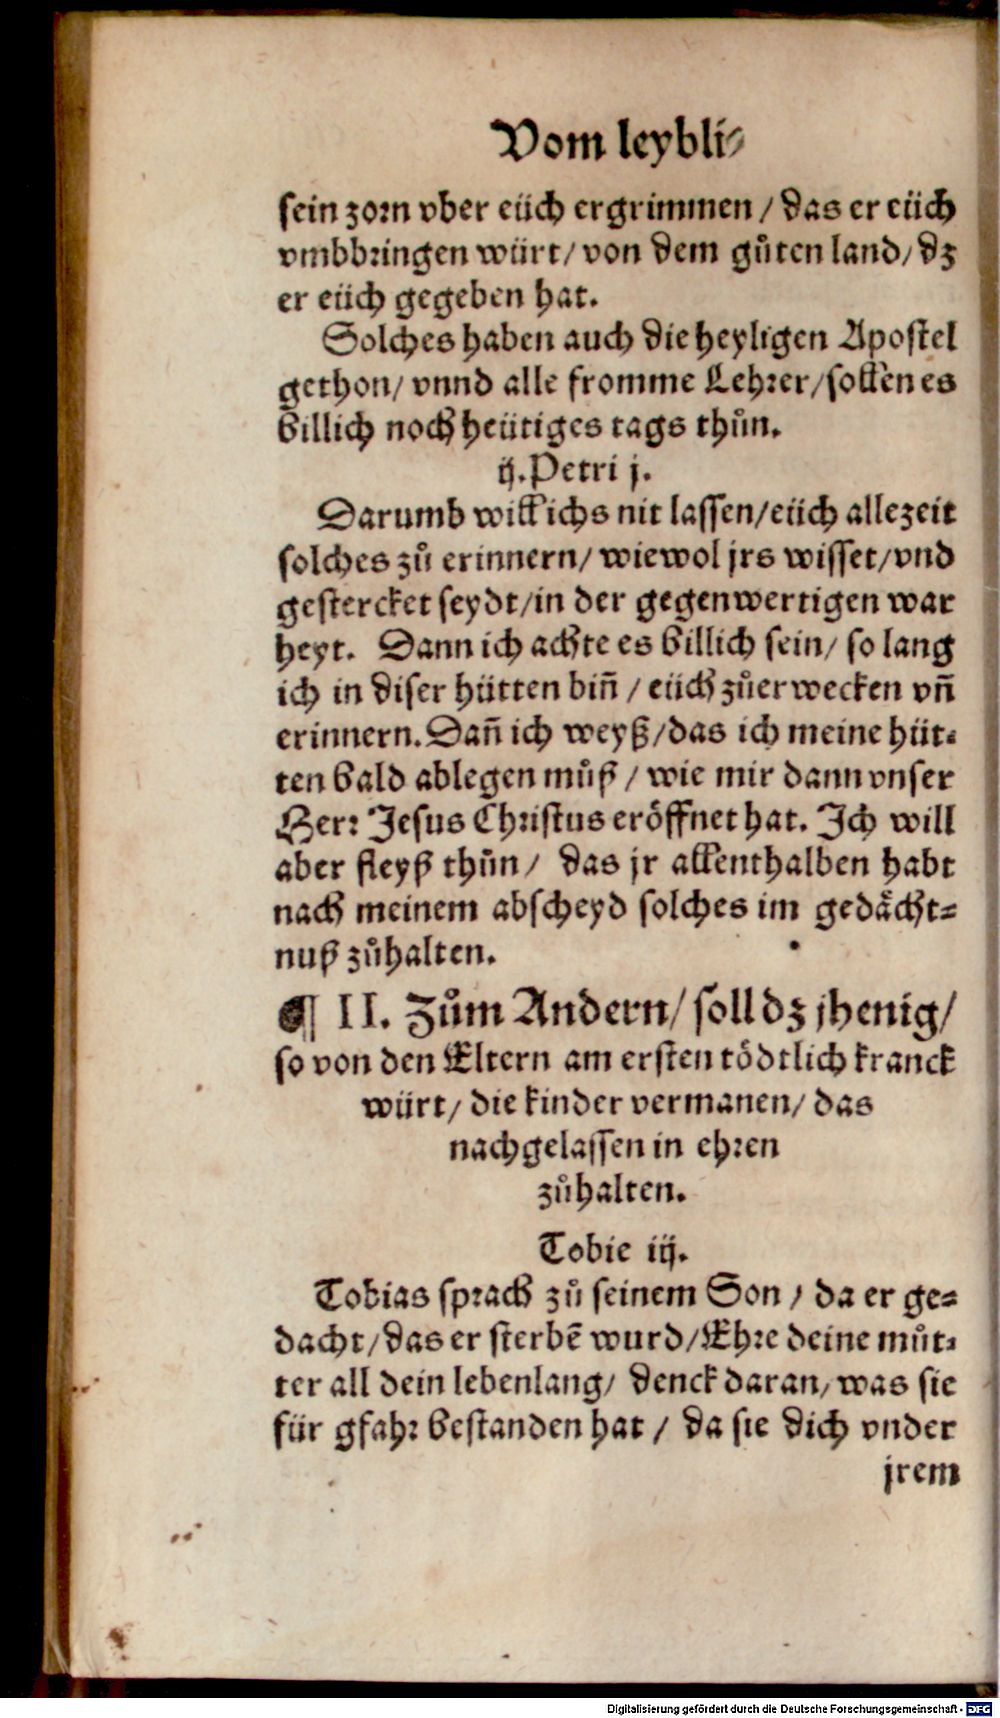 Vom leybli⸗
sein zorn vber eüch ergrimmen / das er eüch
vmbbringen würt / von dem gůten land / dz
er eüch gegeben hat.
Solches haben auch die heyligen Apostel
gethon / vnnd alle fromme Lehrer / sollen es
billich noch heütiges tags thůn.
ij. Petri j.
Darumb will ichs nit lassen / eüch allezeit
solches zů erinnern / wiewol jrs wisset / vnd
gestercket seydt / in der gegenwertigen war
heyt. Dann ich achte es billich sein / so lang
ich in diser hütten biñ / eüch zůerwecken vñ
erinnern. Dañ ich weyß / das ich meine hüt⸗
ten bald ablegen můß / wie mir dann vnser
Herr Jesus Christus eröffnet hat. Ich will
aber fleyß thůn / das jr allenthalben habt
nach meinem abscheyd solches im gedächt⸗
nuß zůhalten.
¶ II. Zům Andern / soll dz jhenig /
so von den Eltern am ersten tödtlich kranck
würt / die kinder vermanen / das
nachgelassen in ehren
zůhalten.
Tobie iij.
Tobias sprach zů seinem Son / da er ge⸗
dacht / das er sterbē wurd / Ehre deine můt⸗
ter all dein lebenlang / denck daran / was sie
für gfahr bestanden hat / da sie dich vnder
jrem
Digitalisierung gefördert durch die Deutsche Forschungsgemeinschaft - DFG